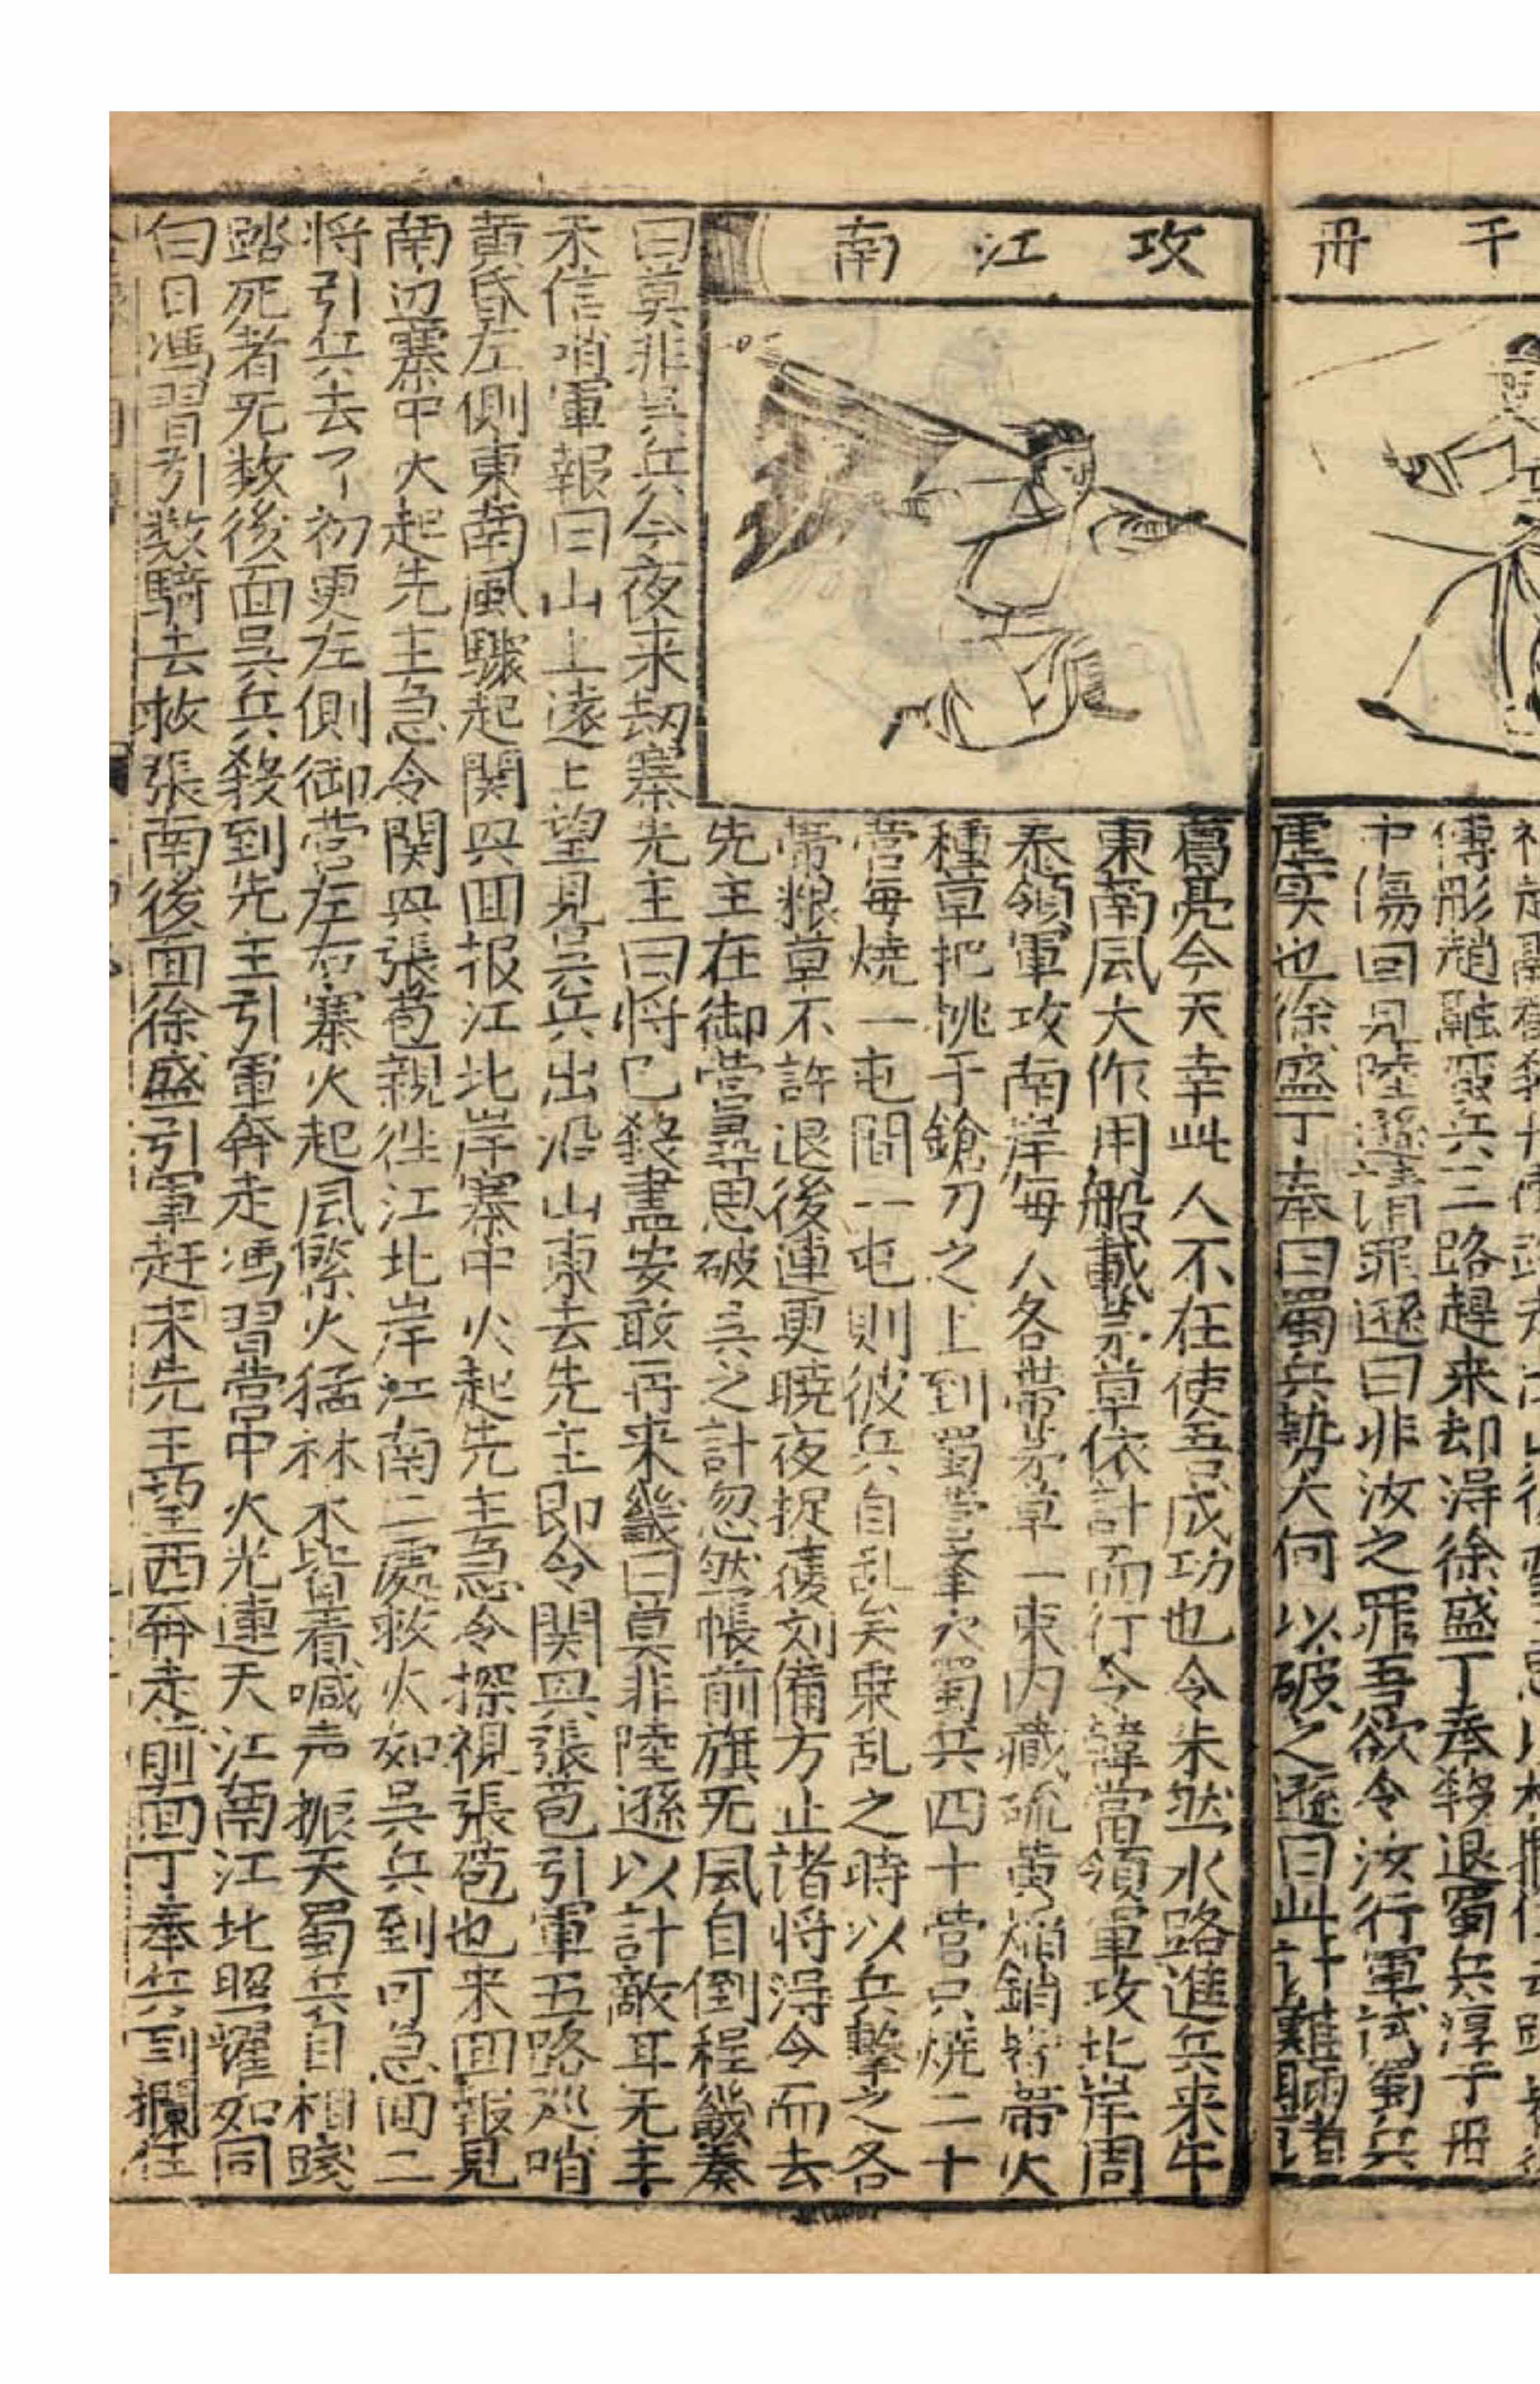 千 冊
傅彤趙融
中傷回見陸遜請罪遜曰非汝之罪吾欲令汝行軍試蜀兵
虛实也徐盛丁奉曰蜀兵勢大何以破之遜曰此計難瞞諸
攻江南
葛亮今天幸此人不在使吾成功也令朱然水路進兵来午
東南风大作用船載茅草依計而行令韓當領軍攻北岸周
泰領軍攻南岸每人各带茅草一束内藏硫黄焰銷皆帶火
種草把挑于鎗刀之上到蜀營举火蜀兵四十營只烧二十
营每燒一屯間一屯則彼兵自乱矣乗乱之時以兵擊之各
帶粮草不許退後連更曉夜捉獲刘備方止諸将淂令而去
先主在御营尋思破吴之計忽然帳前旗无风自倒程畿奏
曰莫非吴兵今夜来刼寨先主曰将已殺盡安敢再来畿曰莫非陸遜以計敵耳无主
未信哨軍報曰山上遠上望見吴兵出沿山東去先主即令関興張苞引軍五路廵哨
黄昏左側東南風驟起関興回报江北岸寨中火起先主急令探視張苞也来回報見
南边寨中火起先主急令関興張苞親徃江北岸江南二處救火如吴兵到可急回二
将引兵去了初更左側御营左右寨火起风紧火猛林木皆着喊声振天蜀兵自相踐
踏死者无数後面吴兵殺到先主引軍奔走馮習营中火光連天江南江北照耀如同
白日馮習引数騎去救張南後面徐盛引軍赶来先主望西奔走前面丁奉兵到攔住